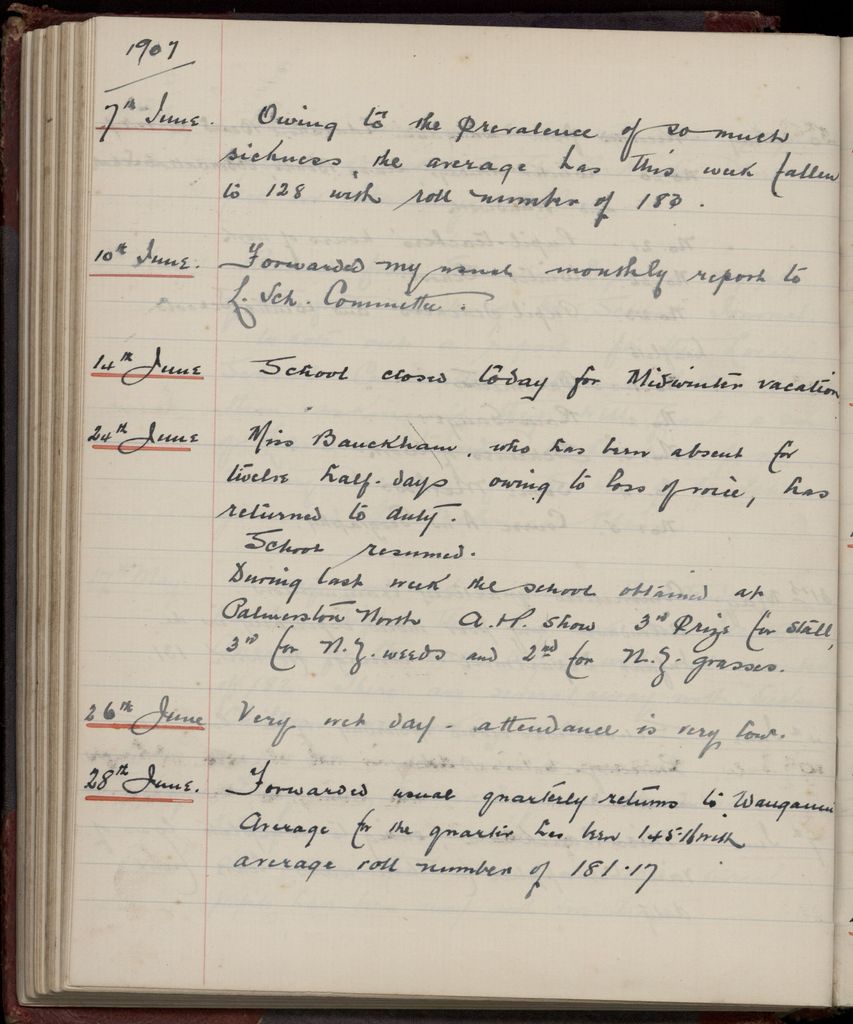 1907
7th June. Owing to the prevalence of so much
sickness, the average has this week fallen
to 128 with roll number of 183.
10th June. Forwarded my usual monthly report to
f. Sch. Committee.
14th June School closed today for Midwinter vacation
24th June Miss Bauckham, who has been absent for
twelve half-days owing to loss of voice, has
returned to duty.
School resumed.
During last week the school obtained at
Palmerston North A.H. Show 3rd Prize for Stall,
3rd for N.Z. weeds and 2nd for N.Z. grasses.
26th June Very wet day - attendance is very low.
28th June. Forwarded usual quarterly returns to Wanganui
Average for the quarter has been with
average roll number of 181.17